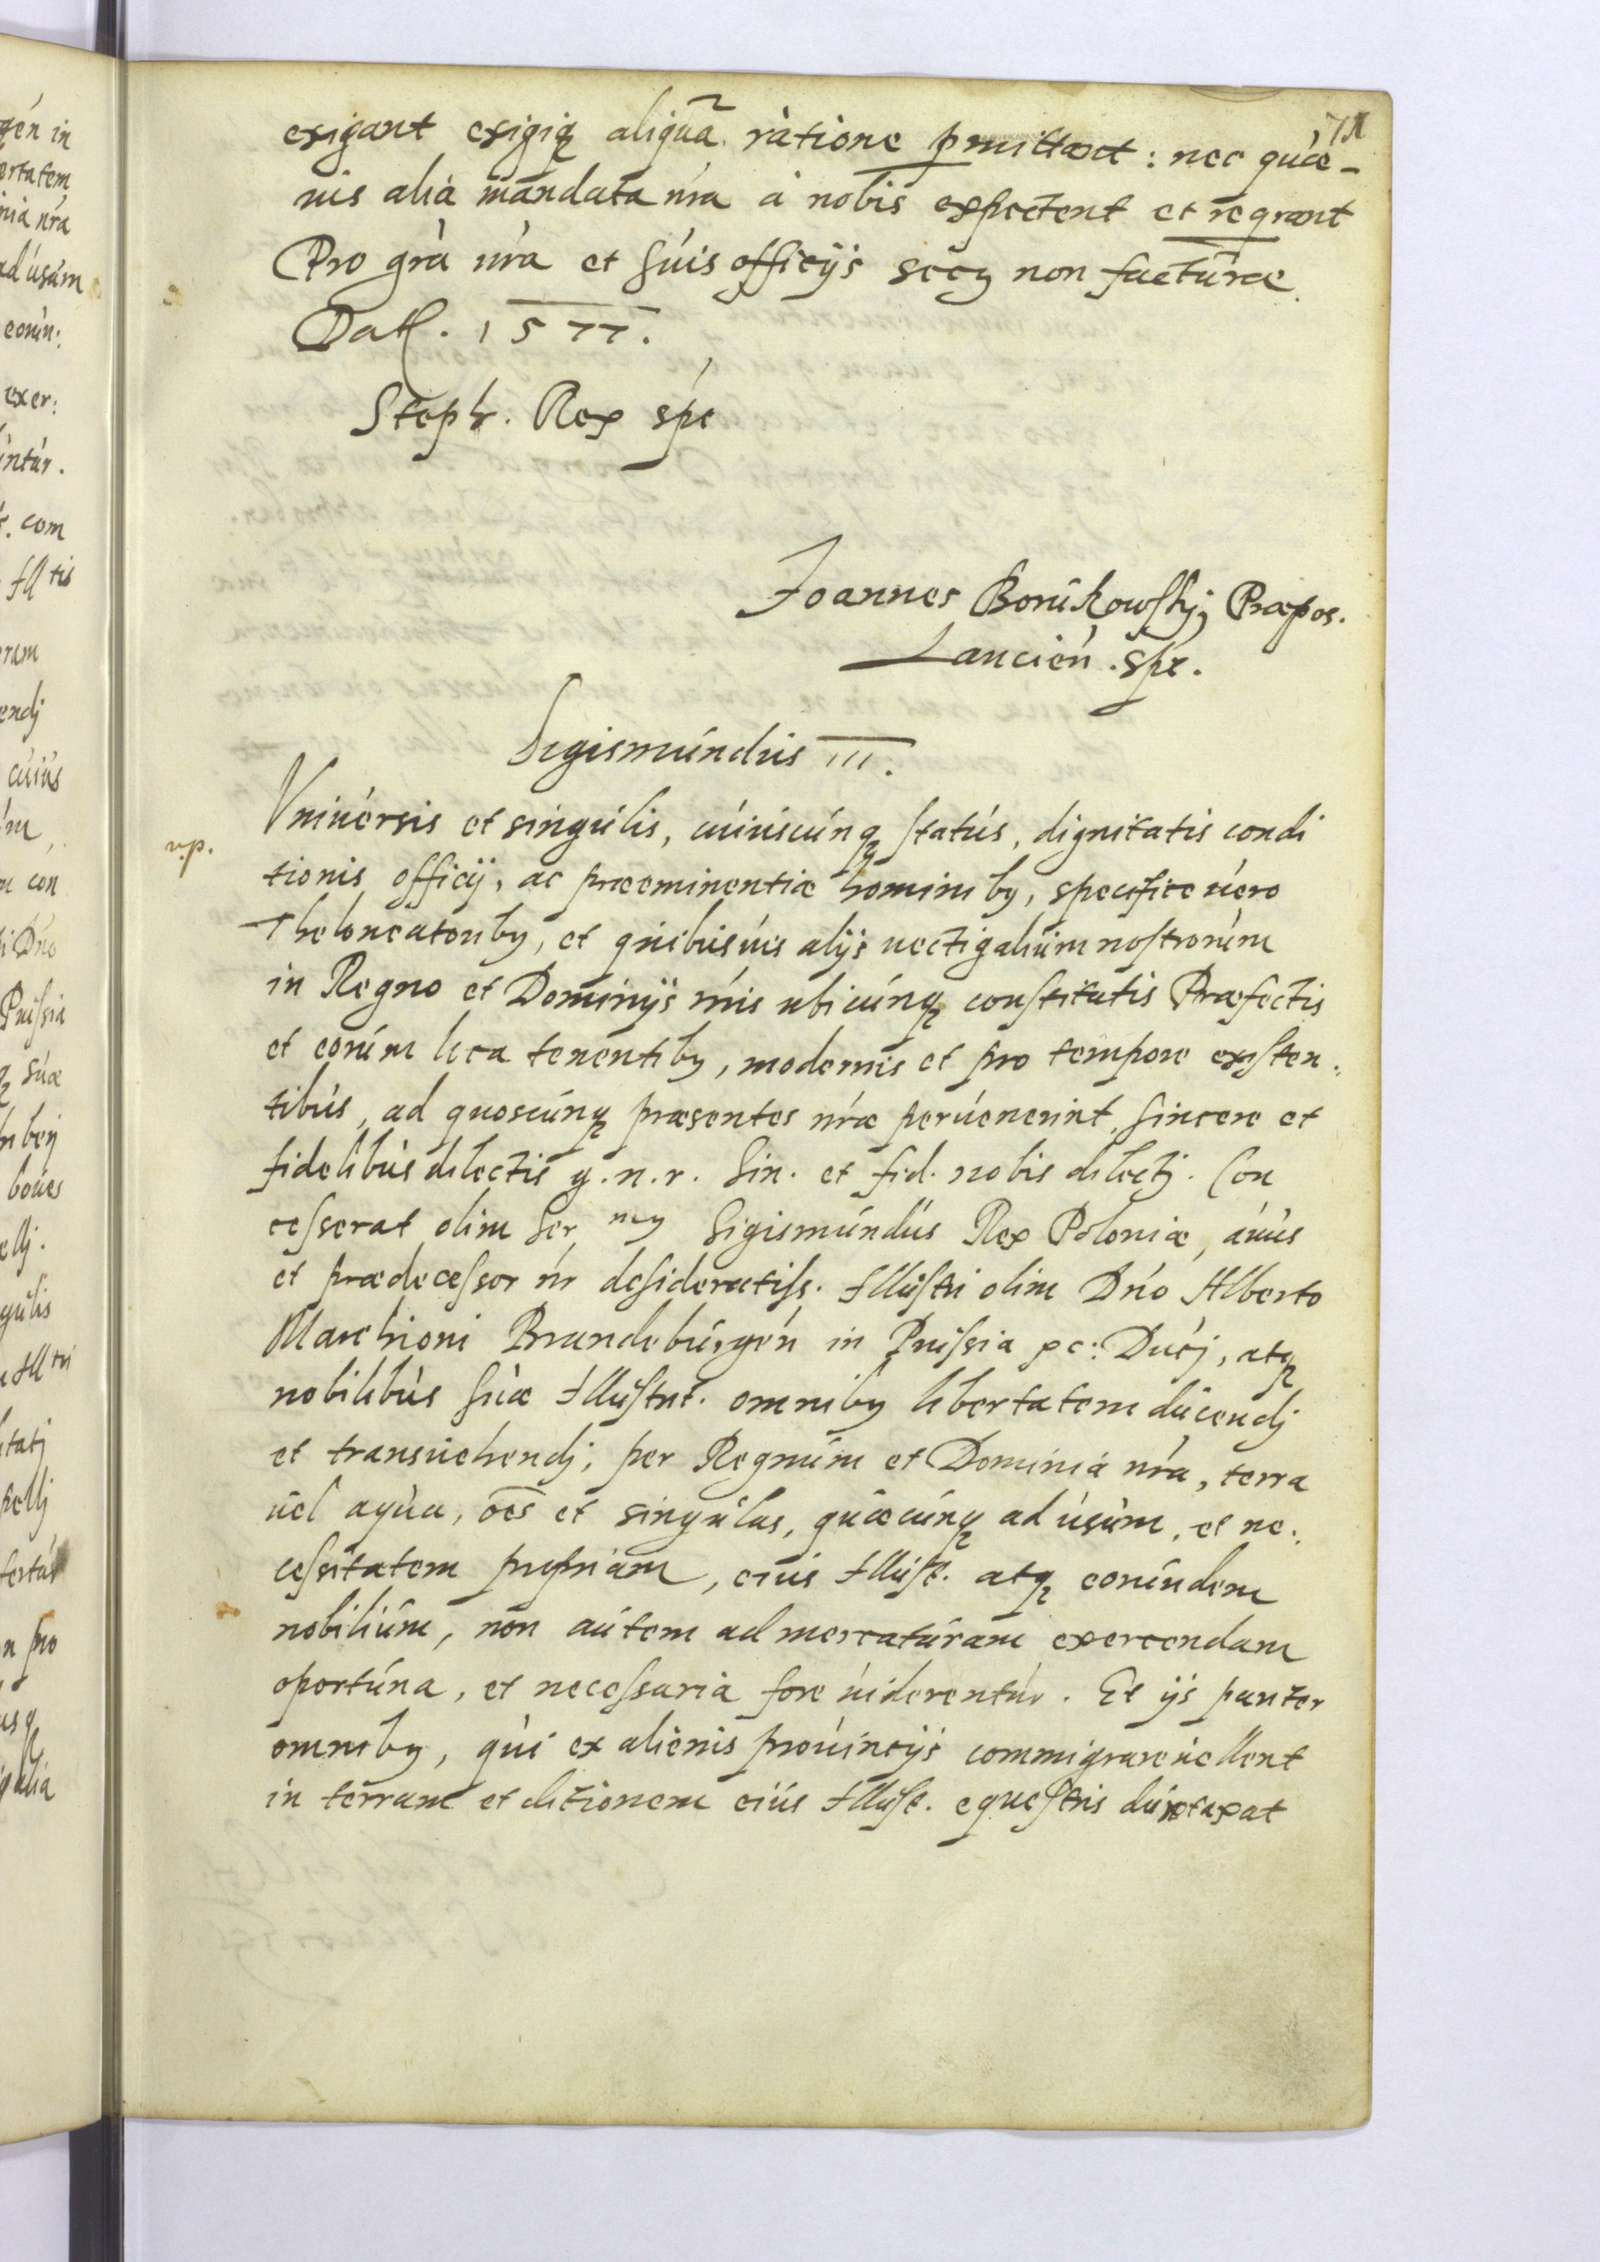 71
exigant exigiq aliqua ratione pmittant: nec quæ-
uis alia mandata nra a nobis expectent et reqrant
Pro gra nra et suis officijs secy non facturæ.
Datt. 1577.
Steph. Rex spt
Joannes Borukowskj, Præpos.
Lancien. spt.
Sigismundus III.
Vniuersis et singulis, cuiuscunq status, dignitatis condi
v.p.
tionis officij, ac præeminentiæ hominiby, specifice uero
Theloneatoriby, et quibusuis alijs uectigalium nostrorum
in Regno et Dominijs nris ubicunq constitutis Præfectis
et eorum loca tenentiby, modernis et pro tempore existen:
tibus, ad quoscunq præsentes nræ peruenerint, sincere et
fidelibus dilectis g. n. r. Sin. et fid. nobis dilectj. Con
cesserat olim Ser my Sigismundus Rex Poloniæ, auus
et prædecessor nr desideratiss. Illustri olim Dno Alberto
Marchioni Brandeburgen in Prussia pc: Ducj, atq
nobilibus suæ Illustrit. omniby libertatem ducendj
et transuehendj, per Regnum et Dominia nra, terra
uel aqua, oes et singulas, quæcunq ad usum, et ne:
cessitatem propriam, eius Illust. atq eorundem
nobilium, non autem ad mercaturam exercendam
oportuna, et necessaria fore uiderentur. Et ijs pariter
omniby, qui ex alienis prouincijs commigrare uellent
in terram et ditionem eius Illust. equestris duntaxat